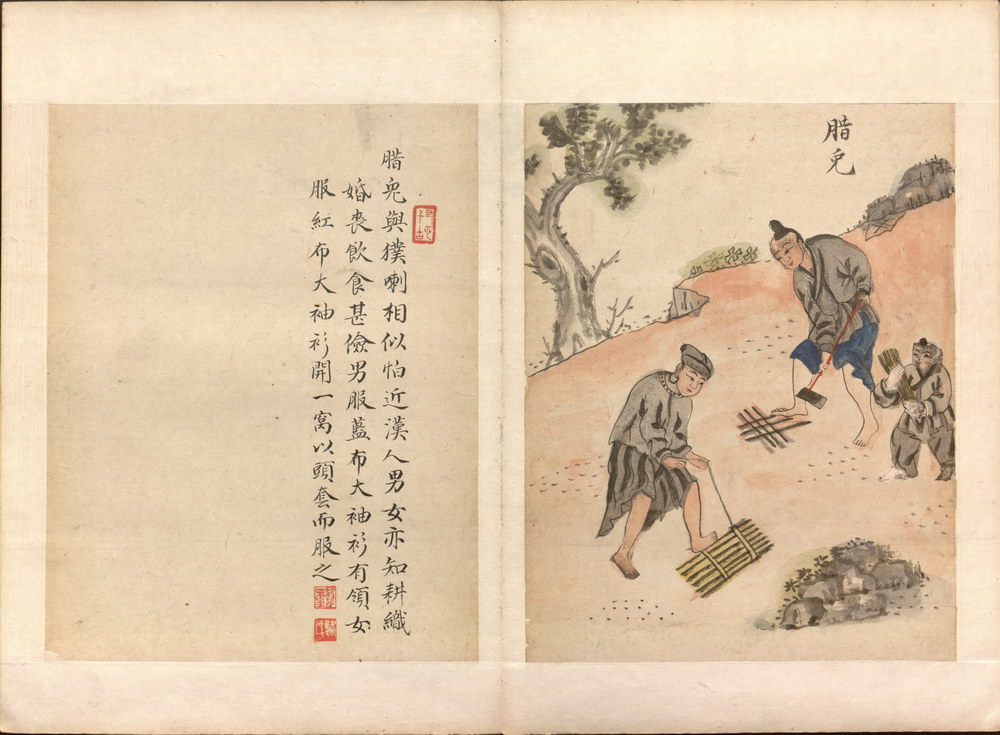 腊兎
腊兎與獛喇相似怕近漢人男女亦知耕織
婚喪飲食甚儉男服藍布大袖衫有領女
服紅布大袖衫開一窩以頭套而服之